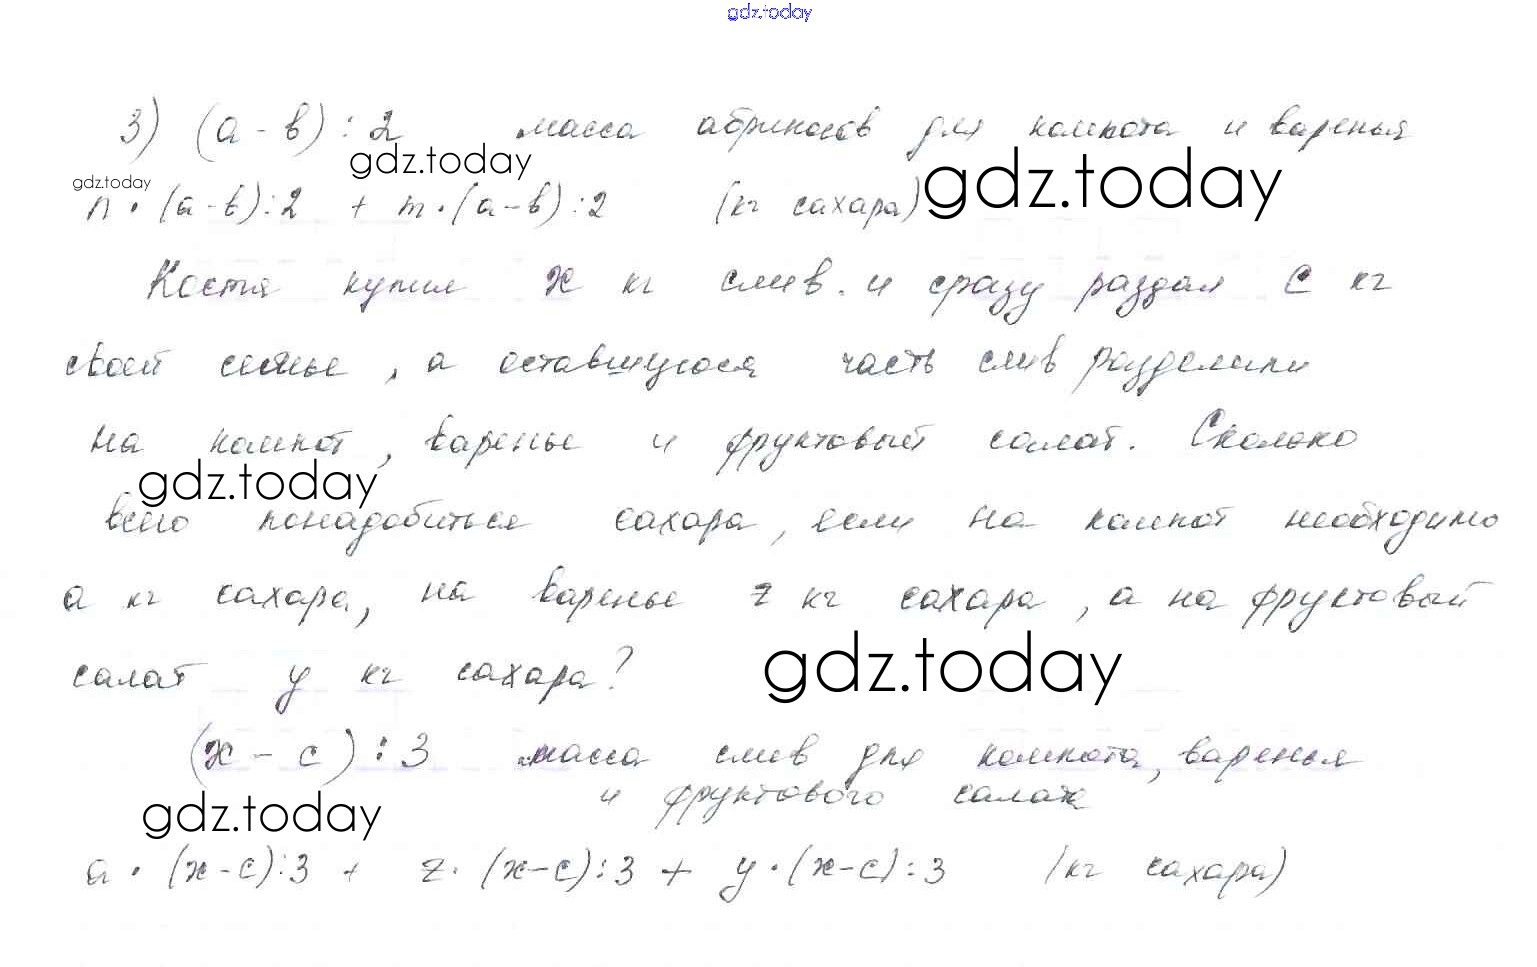 gdz.today
3) (а - в) : 2 масса абрикосов для компота и варенья
gdz.today
gdz.today
gdz.today
n · (а-в):2 + m·(а-в):2 (кг сахара)
Костя купил х кг слив. и сразу раздал с кг
своей семье, а оставшуюся часть слив разделили
на компот, варенье и фруктовый салат. Сколько
gdz.today
всего понадобиться сахара, если на компот необходимо
а кг сахара, на варенье z кг сахара, а на фруктовый
салат у кг сахара?
gdz.today
(х - с) : 3 масса слив для компота, варенья
и фруктового салата
gdz.today
а · (х-с):3 + z· (х-с):3 + у·(х-с):3 (кг сахара)